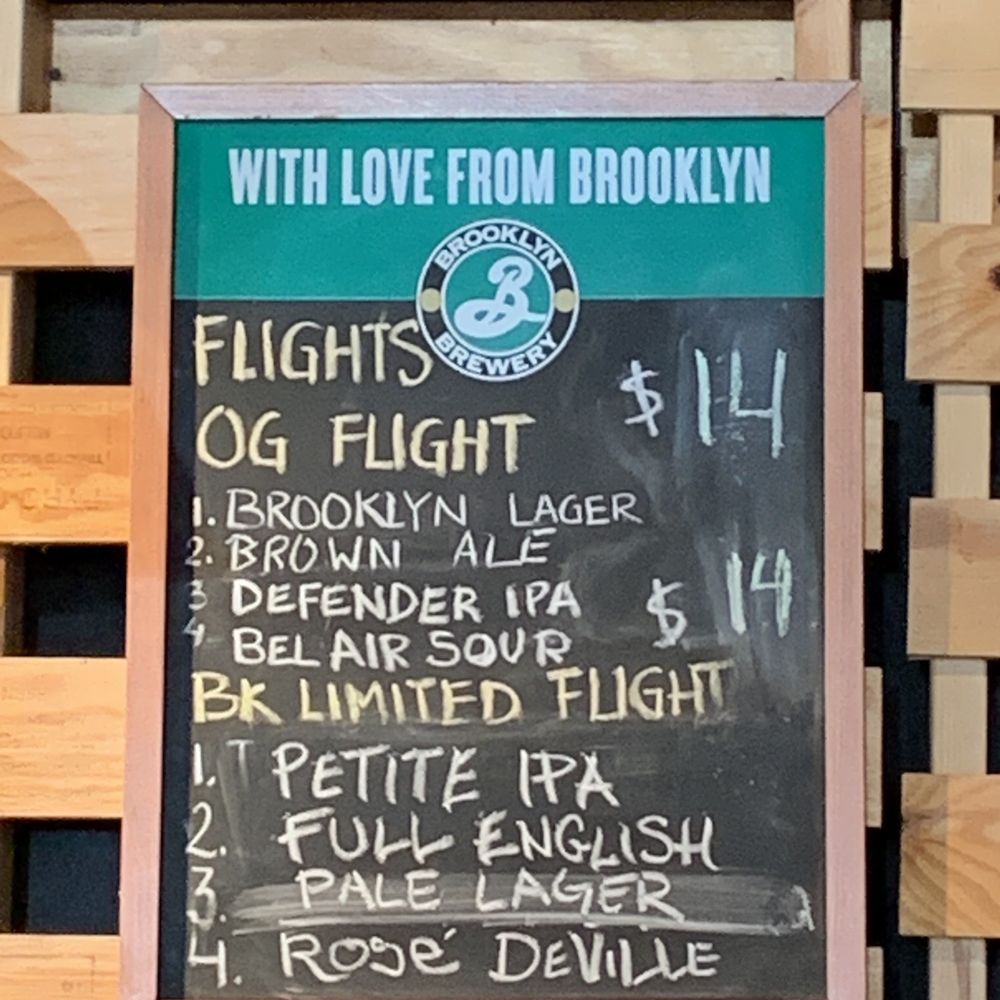 WITH LOVE FROM BROOKLYN
BROOKLYN
B
BREWERY
FLIGHTS
$14
OG FLIGHT
1. BROOKLYN LAGER
2. BROWN ALE
3 DEFENDER IPA
$14
4 BEL AIR SOUR
BK LIMITED FLIGHT
1. PETITE IPA
2. FULL ENGLISH
3. PALE LAGER
4. ROSÉ DEVILLE